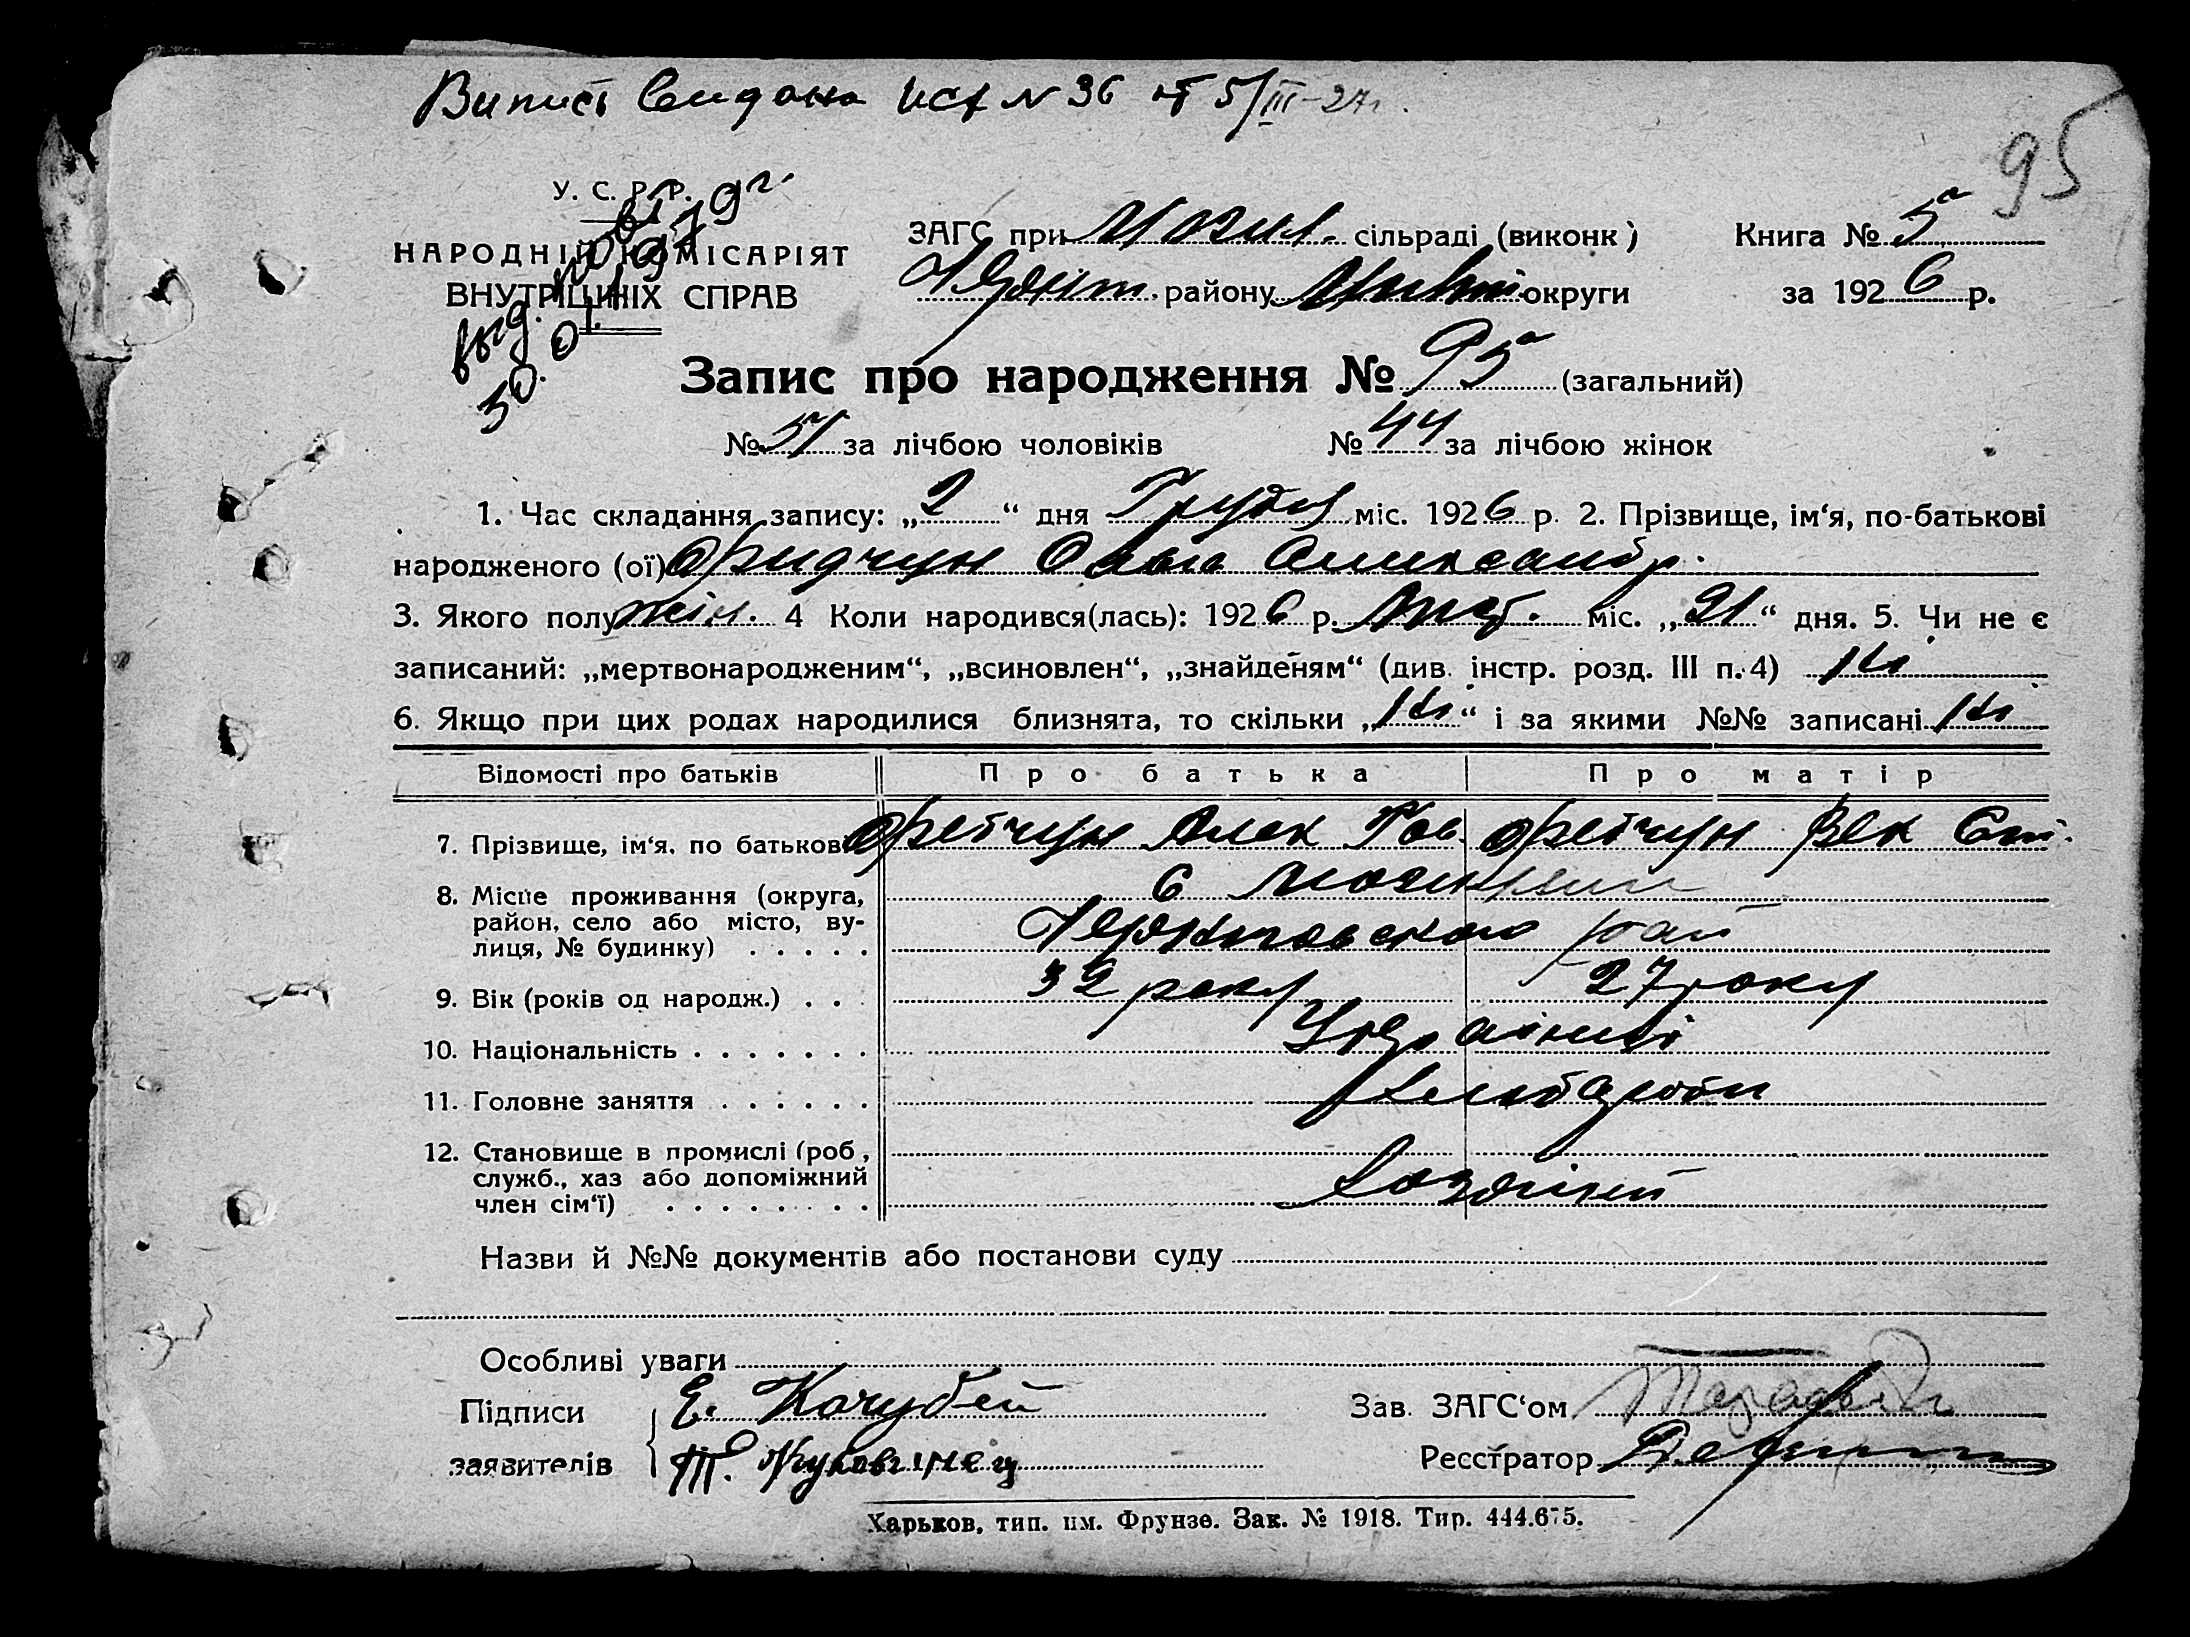 Випись Видана исх № 36 от 5/III-27г.
95
У. С. Р. Р.
НАРОДНІЙ КОМІСАРІЯТ
ВНУТРІШНІХ СПРАВ
ЗАГС при сільраді (виконк)
району округи
Книга № 5
за 1926 р.
Запис про народження № 95 (загальний)
№ 51 за лічбою чоловіків № 44 за лічбою жінок
1. Час складання запису: „2“ дня Грудня міс. 1926 р. 2. Прізвище, ім‘я, по-батькові
народженого (ої) Фридчун Ольга Александр.
3. Якого полу жін. 4 Коли народився(лась): 1926 р. Лист. міс. „21“ дня. 5. Чи не є
записаний: „мертвонародженим“, „всиновлен“, „знайденям“ (див. інстр. розд. III п. 4) Ні
6. Якщо при цих родах народилися близнята, то скільки „Ні“ і за якими №№ записані Ні
Відомості про батьків Про батька Про матір
7. Прізвище, ім‘я, по батькові Фретчун Алек Фретчун
8. Місце проживання (округа,
район, село або місто, ву-
лиця, № будинку) . . . . . рай
9. Вік (років од народж.) . . . 32 року 27 року
10. Національність . . . . . . . Українці
11. Головне заняття . . . . . . Хлібороби
12. Становище в промислі (роб,
служб., хаз або допоміжний
член сім‘ї) . . . . . . . .
Назви й №№ документів або постанови суду
Особливі уваги
Підписи Е. Кочубей Зав. ЗАГС‘ом
заявителів Т. Реєстратор
Харьков, тип. им. Фрунзе. Зак. № 1918. Тир. 444.675.